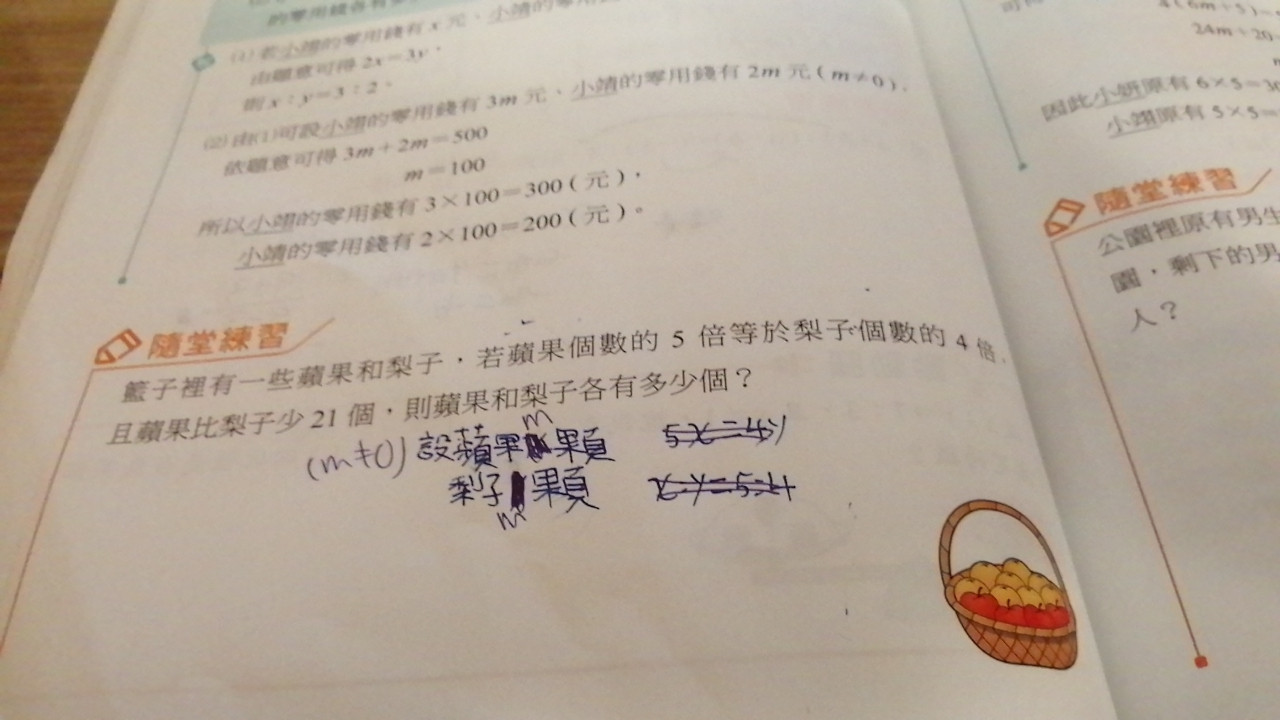 的零用錢各有
(1) 若小翊的零用錢有 x 元、小靖的零用錢
由題意可得 2x=3y，
則 x：y=3：2。
(2) 由(1)可設小翊的零用錢有 3m 元、小靖的零用錢有 2m 元（m≠0）。
依題意可得 3m+2m=500
m=100
所以小翊的零用錢有 3×100=300（元），
小靖的零用錢有 2×100=200（元）。
隨堂練習
籃子裡有一些蘋果和梨子，若蘋果個數的 5 倍等於梨子個數的 4 倍，
且蘋果比梨子少 21 個，則蘋果和梨子各有多少個？
(m≠0) 設蘋果 m 顆 5x=4y
梨子 m 顆 x:y=5:4
可得
4(6m+5)
24m+20
因此小妍原有 6×5=3
小翊原有 5×5=
隨堂練習
公園裡原有男生
園，剩下的男
人？